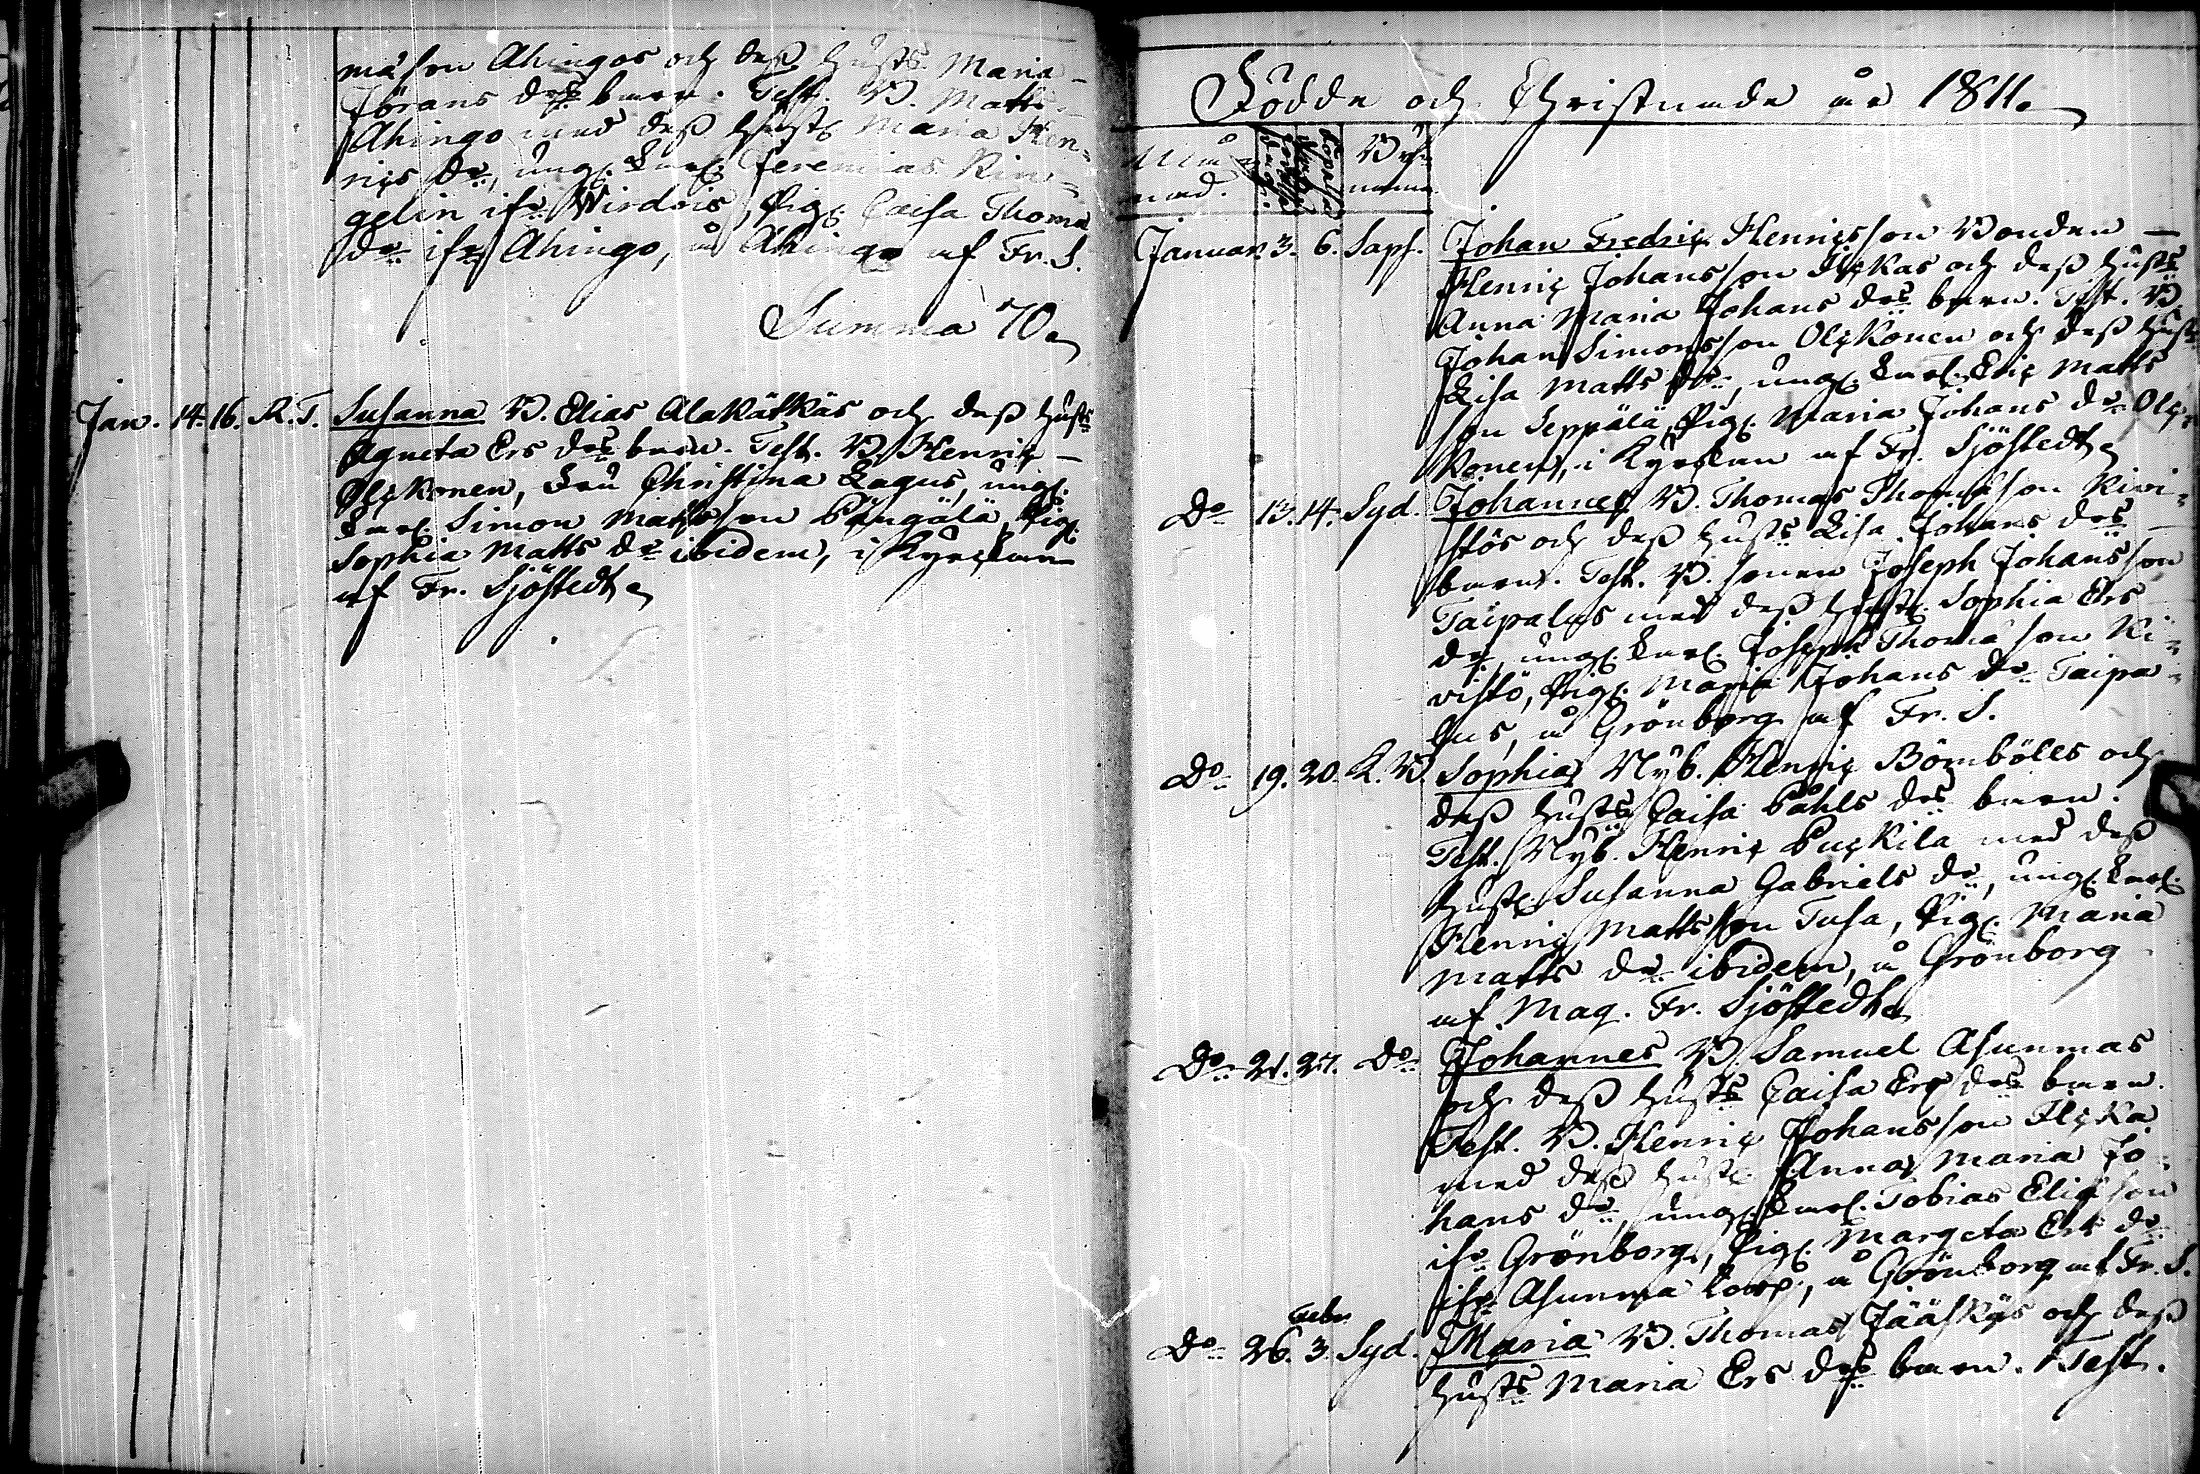 måson Ahingos och dess hust:s Maria
Jörans d:rs barn. Test. B. Matts
Ahingo med dess hust. Maria Hen-
rics d:r, ung. karl. Jeremias Rin-
gelin ifr. Wirdois, pig. Caisa Thomæ
d:r ifr. Ahingo, å Ahingo af Fr. S.
Summa 70.
Jan. 14. 16. R. T. Susanna B. Elias Alakätkäs och dess hust:s
Agneta Ers d:rs barn. Test. B. Henric
Olckonen, Enk. Christina Lagus, ung.
karl. Simon Mattsson Pängälä, pig.
Sophia Matts d:r ibidem, i Kyrckan
af Fr. Sjöstedt
Födde och Christnade år 1811.
Må-
nad. Kopulla By
namn.
Januar. 3. 6. Saps. Johan Fredric Henricsson Bonden
Henric Johansson Ilckas och dess hust:s
Anna Maria Johans d:rs barn. Test. B.
Johan Simonsson Olckonen och dess hust.
Lisa Matts d:r, ung. karl. Eric Matts
son Seppälä, pig. Maria Johans d:r Olc-
konen, i Kyrckan af Fr. Sjöstedt
D:o 13. 14. Syd. Johannes B. Thomas Thomæson Kivi-
stös och dess hust:s Lisa Johans d:rs
barn. Test. B. sonen Joseph Johansson
Taipalus med dess hust. Sophia Ers
d:r, ung. karl. Joseph Thomæson Ki-
vistö, pig. Maria Johans d:r Taipa-
lus, å Grönborg af Fr. S.
D:o 19. 20. K. B. Sophia Nyb. Henric Bömböles och
dess hust:s Caisa Påhls d:rs barn.
Test. Nyb. Henric Puckila med dess
hust. Susanna Gabriels d:r, ung. karl.
Henric Mattsson Tusa, pig. Maria
Matts d:r ibidem, å Grönborg
af Mag. Fr. Sjöstedt
D:o 21. 27. D:o Johannes B. Samuel Asunmas
och dess hust:s Caisa Ers d:rs barn.
Test. B. Henric Johansson Ilcka
med dess hust. Anna Maria Jo-
hans d:r, ung. karl. Tobias Eliæson
ifr. Grönborg, pig. Margeta Ers d:r
ifr. Asunma torp, å Grönborg af Fr. S.
Febr.
D:o 26. 3. Syd. Maria B. Thomas Jääskys och dess
hust:s Maria Ers d:rs barn. Test.